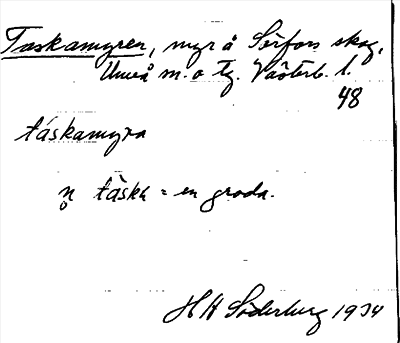 Taskamyren, myr å Sörfors skog,
Umeå m. o tg. Västerb. l.
48
táskamyra
n̥ täska = en groda.
H H Söderberg 1934